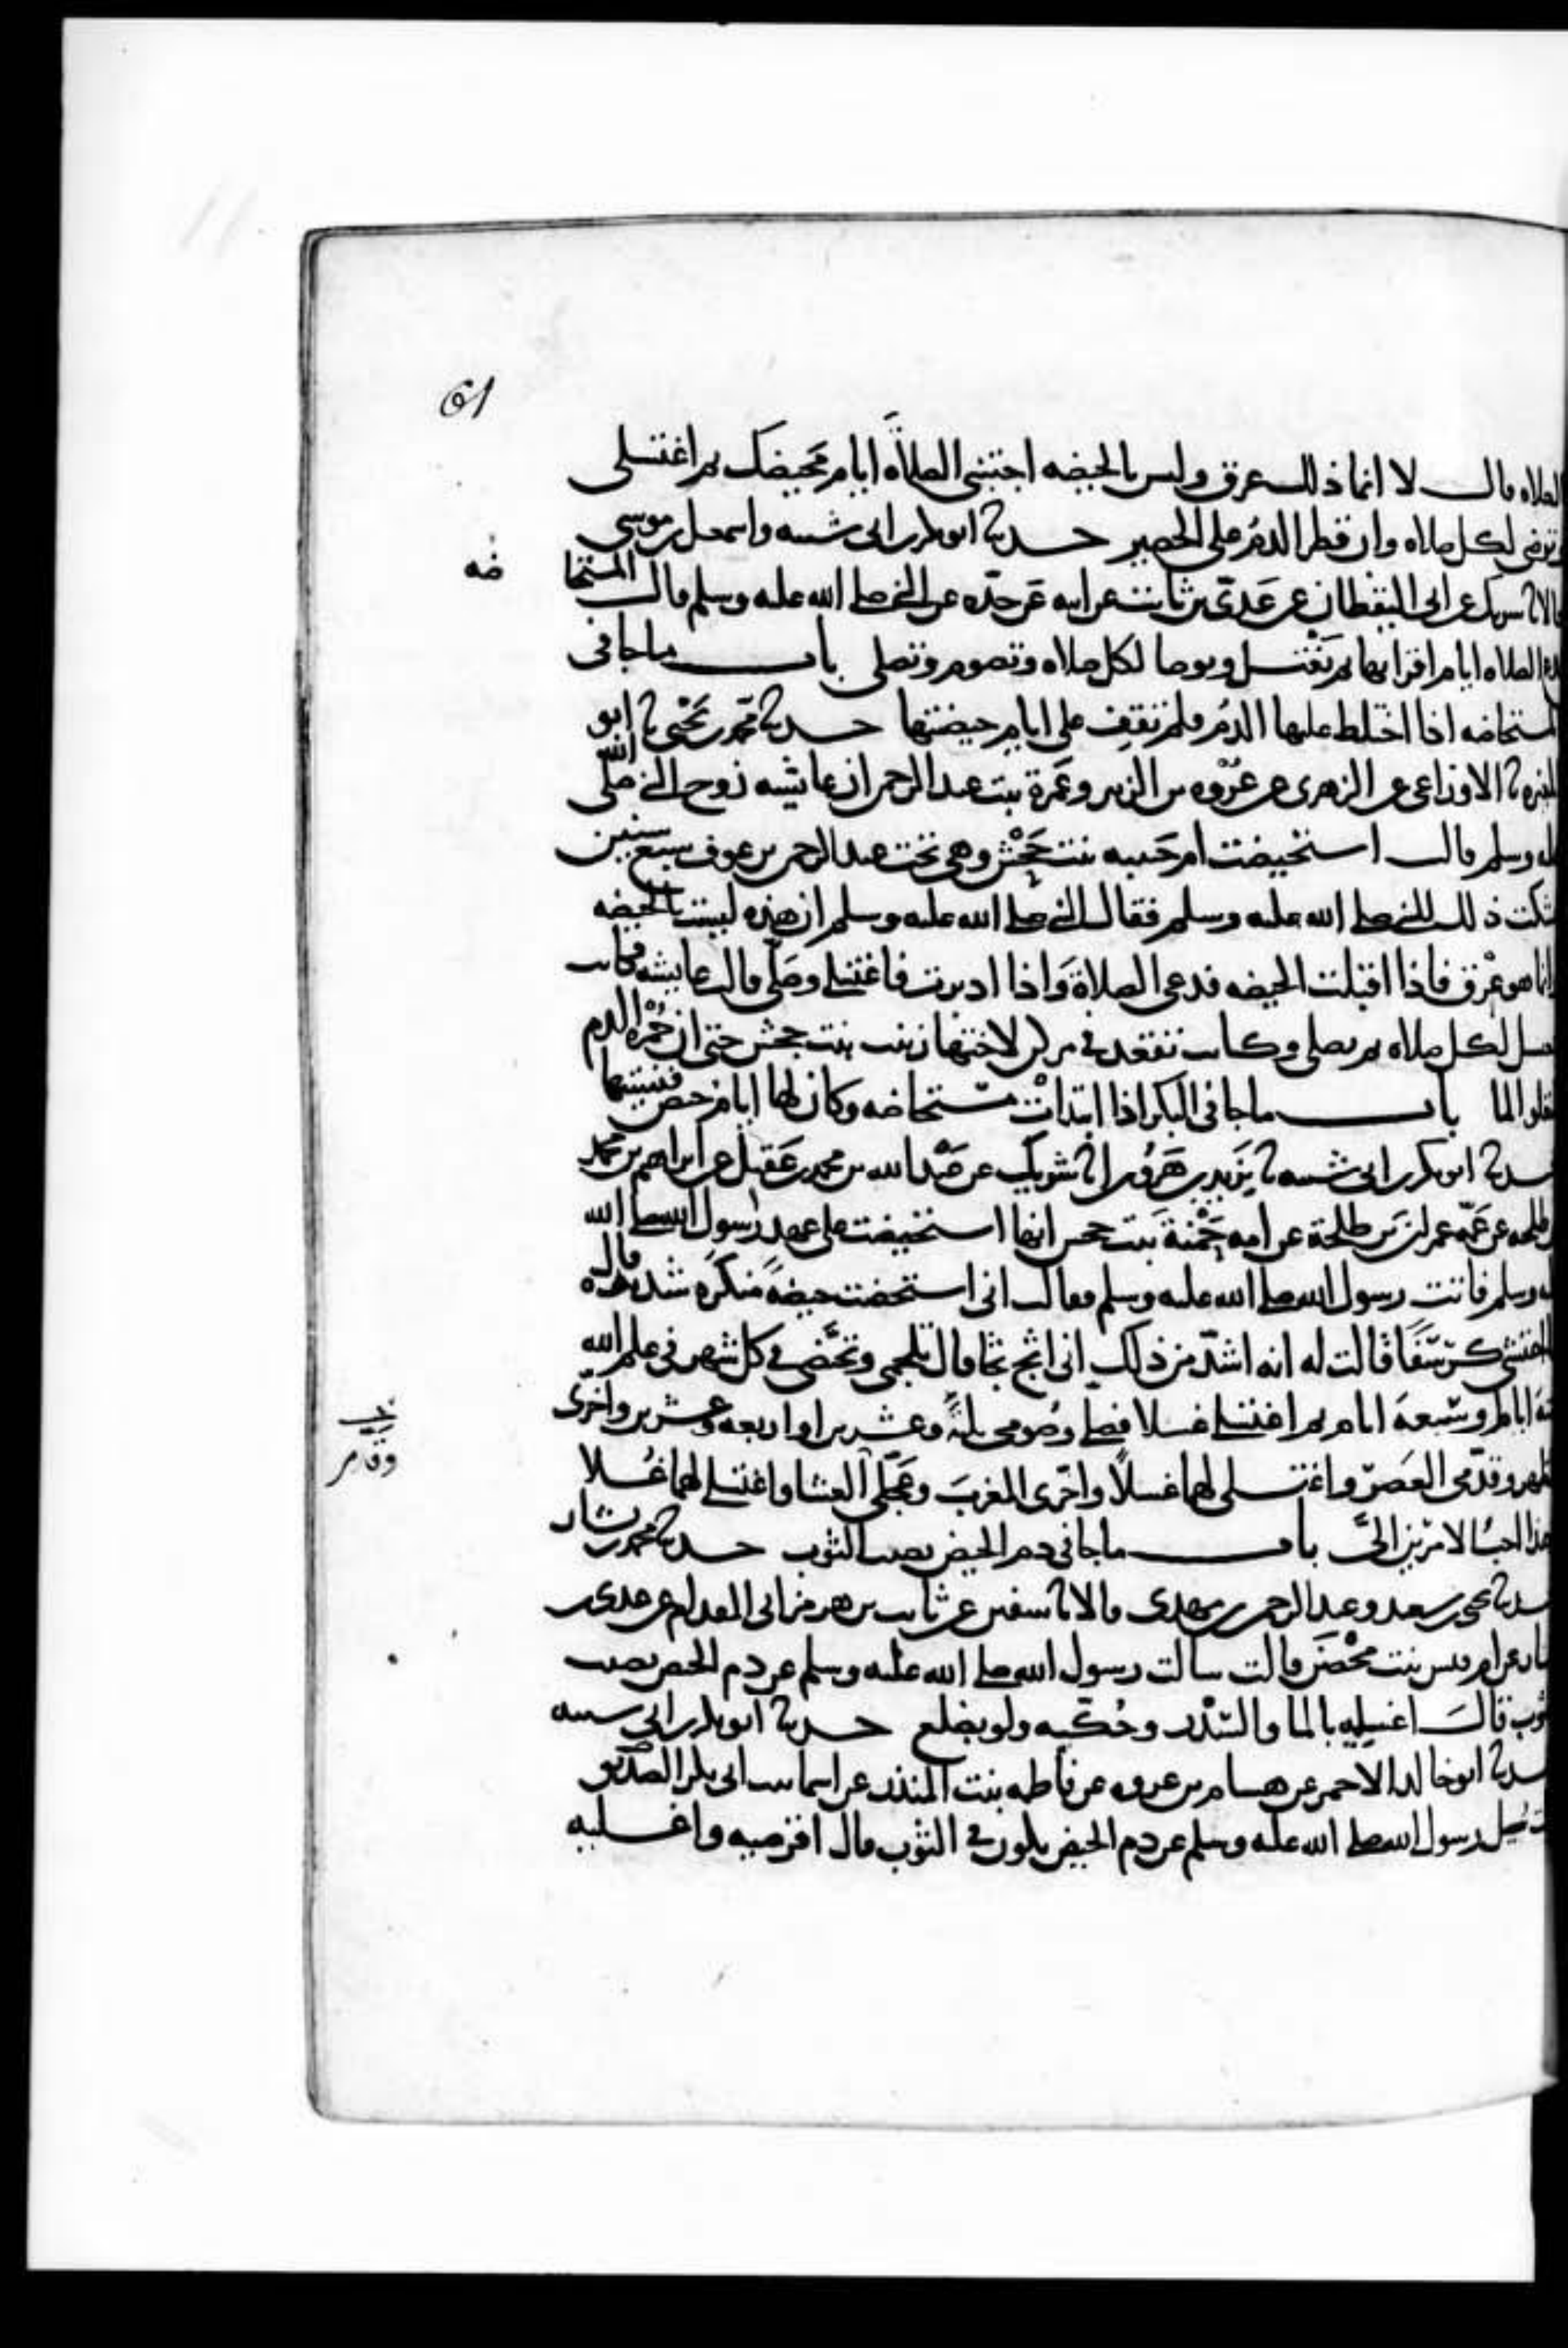 61
الصلاه قال لا انما ذلك عرق وليس بالحيضه اجتنبى الصلاة ايام محيضك ثم اغتسلى
وتوضى لكل صلاه وان قطر الدم على الحصير حدثنا ابو بكر بن ابى شيبه واسمعيل بن موسى
قالا نا شريك عن ابى اليقظان عن عدى بن ثابت عن ابيه عن جده عن النبى صلى الله عليه وسلم قال المستحا
ضه
تدع الصلاه ايام اقرائها ثم تغتسل وتوضا لكل صلاه وتصوم وتصلى باب ما جا فى
المستحاضه اذا اختلط عليها الدم فلم تقف على ايام حيضتها حدثنا محمد بن يحيى نا ابو
المغيره نا الاوزاعى عن الزهرى عن عروه بن الزبير وعمرة بنت عبد الرحمن ان عايشه زوج النبى صلى الله
عليه وسلم قالت استحيضت ام حبيبه بنت جحش وهى تحت عبد الرحمن بن عوف سبع سنين
فشكت ذلك للنبى صلى الله عليه وسلم فقال النبى صلى الله عليه وسلم ان هذه ليست بالحيضه
وانما هو عرق فاذا اقبلت الحيضه فدعى الصلاة واذا ادبرت فاغتسلى وصلى قالت عايشه فكانت
تغتسل لكل صلاه ثم تصلى وكانت تقعد فى مركن لاختها زينب بنت جحش حتى ان حمرة الدم
لتعلو الما باب ما جا فى البكر اذا ابتدات مستحاضه وكان لها ايام حيض فنسيتها
حدثنا ابو بكر بن ابى شيبه نا يزيد بن هرون انا شريك عن عبد الله بن محمد بن عقيل عن ابراهيم بن محمد
بن طلحه عن عمه عمران بن طلحة عن امه حمنة بنت جحش انها استحيضت على عهد رسول الله صلى الله
عليه وسلم فاتت رسول الله صلى الله عليه وسلم فقالت انى استحضت حيضة منكرة شديده قال
احتشى كرسفا قالت له انه اشد من ذلك انى اثج ثجا قال تلجمى وتحيضى فى كل شهر فى علم الله
سته ايام او سبعة ايام ثم اغتسلى غسلا فصلى وصومى ثلثة وعشرين او اربعه وعشرين واخرى
الظهر وقدمى العصر واغتسلى لهما غسلا واخرى المغرب وعجلى العشا واغتسلى لهما غسلا
وهذا احب الامرين الى باب ما جا فى دم الحيض يصيب الثوب حدثنا محمد بن بشار
حدثنا يحيى بن سعيد وعبد الرحمن بن مهدى قالا نا سفين عن ثابت بن هرمز ابى المقدام عن عدى بن
دينار عن ام قيس بنت محصن قالت سالت رسول الله صلى الله عليه وسلم عن دم الحيض يصيب
الثوب قال اغسليه بالما والسدر وحكيه ولو بضلع حدثنا ابو بكر بن ابى شيبه
حدثنا ابو خالد الاحمر عن هشام بن عروه عن فاطمه بنت المنذر عن اسما بنت ابى بكر الصديق
سيل رسول الله صلى الله عليه وسلم عن دم الحيض يكون فى الثوب قال اقرصيه واغسليه